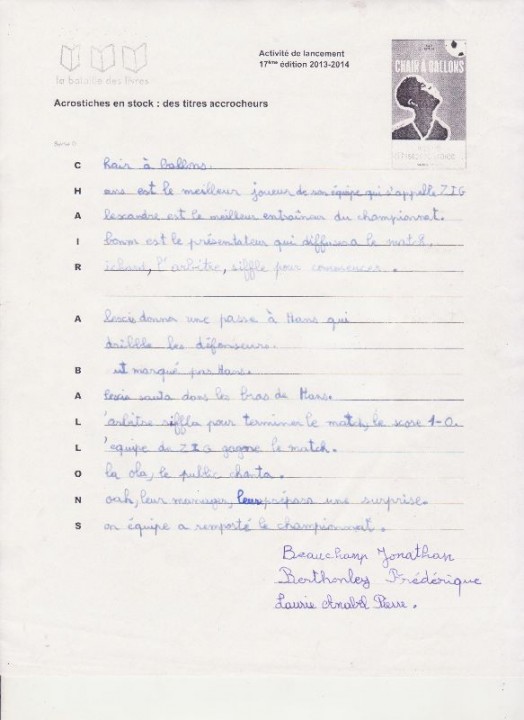 la bataille des livres
Activité de lancement
17ème édition 2013-2014
CHAIR À BALLONS
Acrostiches en stock : des titres accrocheurs
C hair à ballons.
H ans est le meilleur joueur de son équipe qui s'appelle ZIG
A lescandre est le meilleur entraîneur du championnat.
I bonm est le présentateur qui diffusera le match.
R ichard, l'arbitre, siffle pour commencer.
A lescis donner une passe à Hans qui
dribble les défenseurs.
B ut marqué par Hans.
A lescis sauta dans les bras de Hans.
L 'arbitre siffla pour terminer le match, le score 1-0.
L 'équipe de ZIG gagne le match.
O la ola, le public chanta.
N oah, leur manager, leur prépara une surprise.
S on équipe a remposté le championnat.
Beauchamp Jonathan
Berthonley Frédérique
Laurie Anabel Pierre.